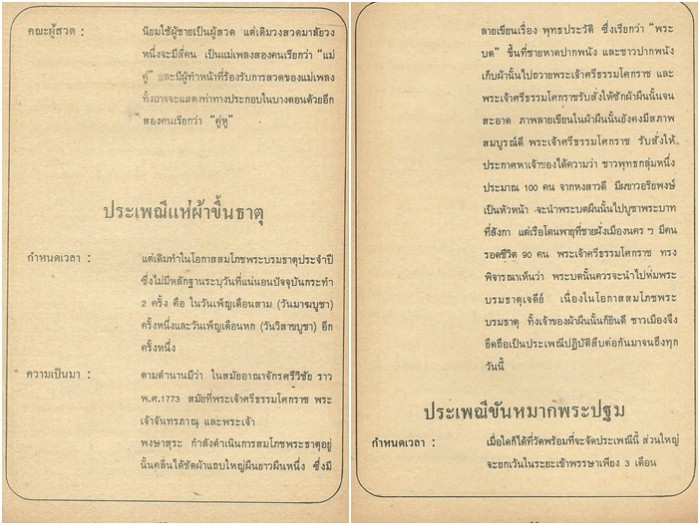 คณะผู้สวด : นิยมใช้ผู้ชายเป็นผู้สวด แต่เดิมวงสวดมาลัยวง
หนึ่งจะมีสี่คน เป็นแม่เพลงสองคนเรียกว่า "แม่
คู่" และมีผู้ทำหน้าที่ร้องรับการสวดของแม่เพลง
ทั้งอาจจะแสดงท่าทางประกอบในบางตอนด้วยอีก
สองคนเรียกว่า "คู่หู"
ประเพณีแห่ผ้าขึ้นธาตุ
กำหนดเวลา : แต่เดิมทำในโอกาสสมโภชพระบรมธาตุประจำปี
ซึ่งไม่มีหลักฐานระบุวันที่แน่นอนปัจจุบันกระทำ
2 ครั้ง คือ ในวันเพ็ญเดือนสาม (วันมาฆบูชา)
ครั้งหนึ่งและวันเพ็ญเดือนหก (วันวิสาขบูชา) อีก
ครั้งหนึ่ง
ความเป็นมา : ตามตำนานมีว่า ในสมัยอาณาจักรศรีวิชัย ราว
พ.ศ.1773 สมัยที่พระเจ้าศรีธรรมโศกราช พระ
เจ้าจันทรภาณุ และพระเจ้า
พงษาสุระ กำลังดำเนินการสมโภชพระธาตุอยู่
นั้นคลื่นได้ซัดผ้าแถบใหญ่ผืนยาวผืนหนึ่ง ซึ่งมี
ลายเขียนเรื่อง พุทธประวัติ ซึ่งเรียกว่า "พระ
บต" ขึ้นที่ชายหาดปากพนัง และชาวปากพนัง
เก็บผ้านั้นไปถวายพระเจ้าศรีธรรมโศกราช และ
พระเจ้าศรีธรรมโศกราชรับสั่งให้ซักผ้าผืนนั้นจน
สะอาด ภาพลายเขียนในผ้าผืนนั้นยังคงมีสภาพ
สมบูรณ์ดี พระเจ้าศรีธรรมโศกราช รับสั่งให้
ประกาศหาเจ้าของได้ความว่า ชาวพุทธกลุ่มหนึ่ง
ประมาณ 100 คน จากหงสาวดี มีผขาวอริยพงษ์
เป็นหัวหน้า จะนำพระบตผืนนั้นไปบูชาพระบาท
ที่ลังกา แต่เรือโดนพายุที่ชายฝั่งเมืองนคร ฯ มีคน
รอดชีวิต 90 คน พระเจ้าศรีธรรมโศกราช ทรง
พิจารณาเห็นว่า พระบตนั้นควรจะนำไปห่มพระ
บรมธาตุเจดีย์ เนื่องในโอกาสสมโภชพระ
บรมธาตุ ทั้งเจ้าของผ้าผืนนั้นก็ยินดี ชาวเมืองจึง
ยึดถือเป็นประเพณีปฏิบัติสืบต่อกันมาจนถึงทุก
วันนี้
ประเพณีขันหมากพระปฐม
กำหนดเวลา : เมื่อใดก็ได้ที่วัดพร้อมที่จะจัดประเพณีนี้ ส่วนใหญ่
จะยกเว้นในระยะเข้าพรรษาเพียง 3 เดือน